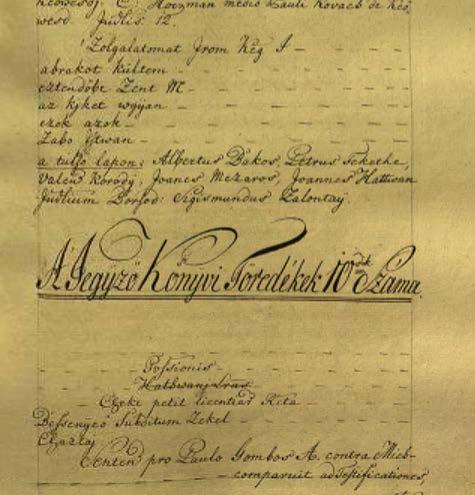 medio Pauli Kovach de Keö
wesd. Judlis 12.
Zolgalatomat Jrom Kēg A -
abrakot kültem -
eztendőbe Zent M -
az kjket wgÿan -
ezek azok -
Zabo Jstwan -
a tulsó lapon: Albertus Bakos, Petrus Fekethe,
Valen Korodÿ, Joanes Mezaros, Joannes Hattwan
Judlium Borsod: Sigismundus Zalontaÿ.
A' Jegyző Könyvi Töredékek 10dik Száma.
Possionis -
Hathwanj Pras
Czeke petit licentiar Rita
Bessenÿeő Subditum Zekel -
Chazlaj
Centen pro Paulo Gombos A. contra Mich-
comparuit ad Testificationes,